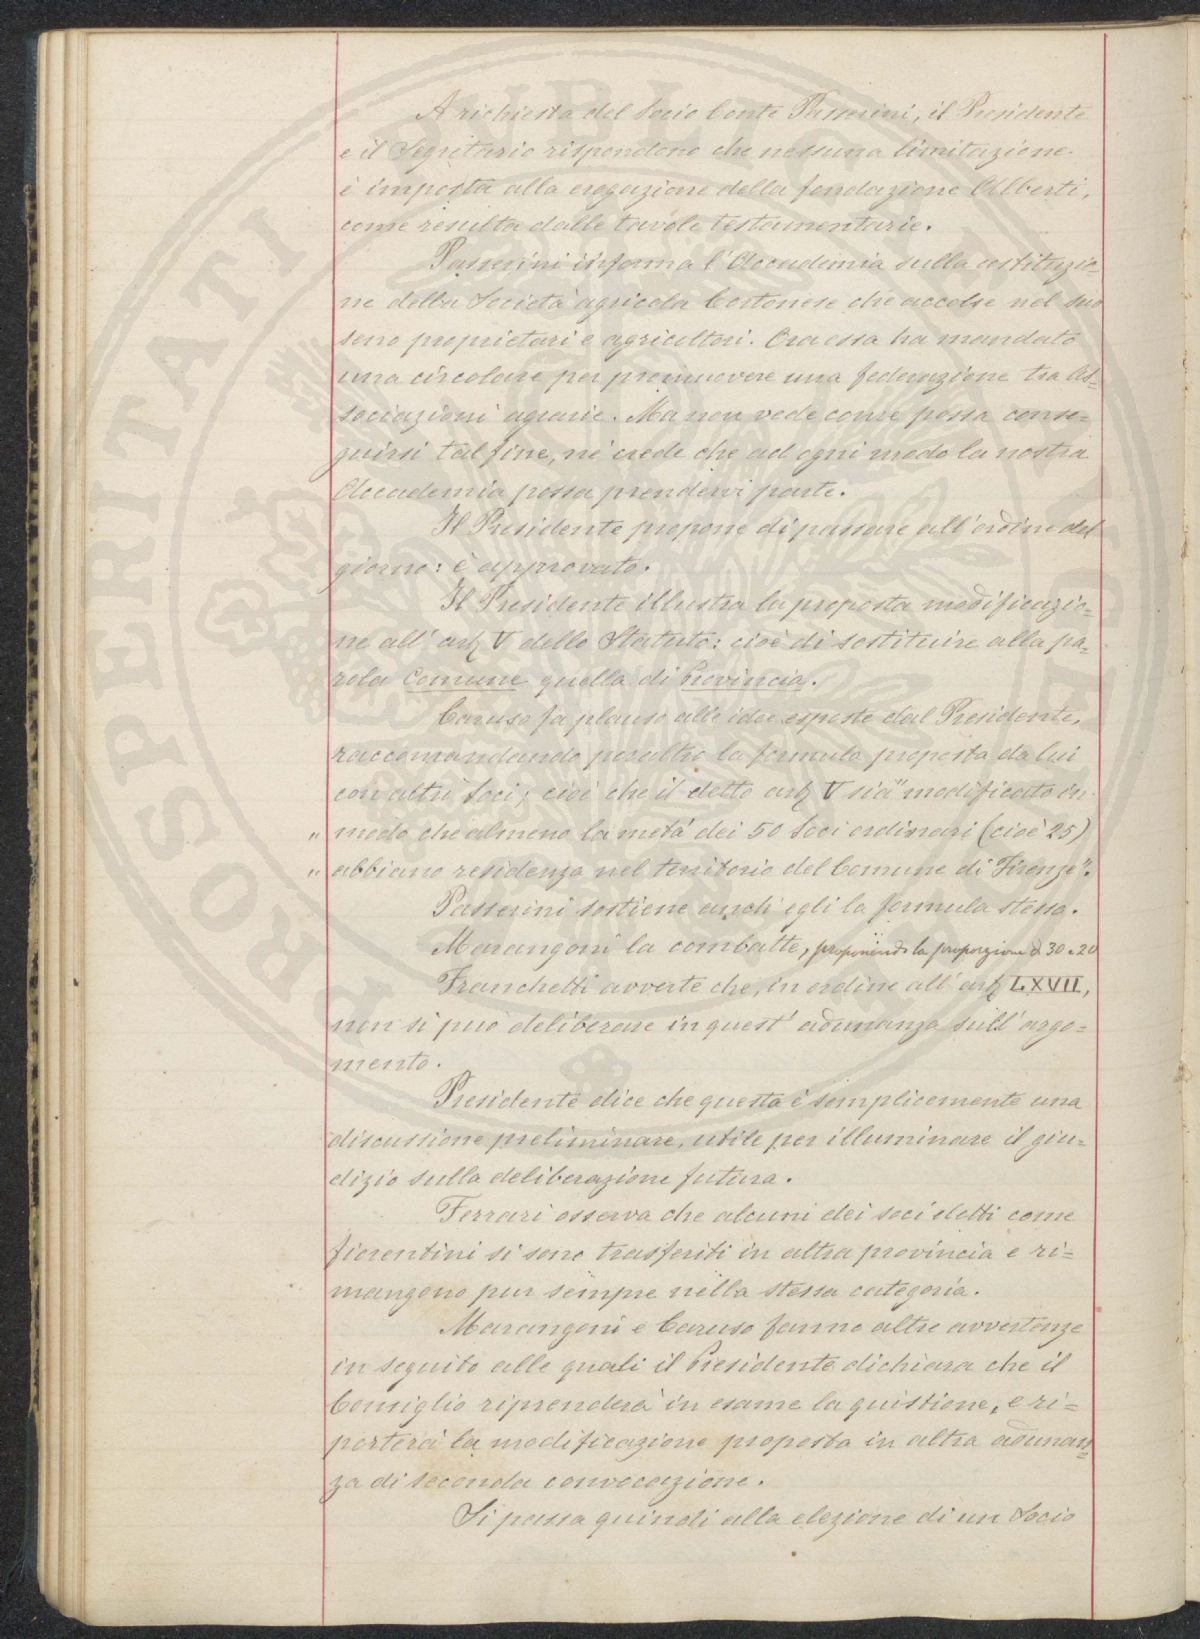 A richiesta del Socio Conte Passerini, il Presidente
e il Segretario rispondono che nessuna limitazione
è imposta alla erogazione della fondazione Alberti,
come resulta dalle tavole testamentarie.
Passerini informa l'Accademia sulla costituzio=
ne della Società agricola Cortonese che accolse nel suo
seno proprietari e agricoltori. Ora essa ha mandato
una circolare per promuovere una federazione tra As=
sociazioni agrarie. Ma non vede come possa conse=
guirsi tal fine, nè crede che ad ogni modo la nostra
Accademia possa prendervi parte.
Il Presidente propone di passare all'ordine del
giorno: è approvato.
Il Presidente illustra la proposta modificazio=
ne all'art V dello Statuto: cioè di sostituire alla pa=
rola Comune quella di Provincia.
Caruso fa plauso alle idee esposte dal Presidente,
raccomandando peraltro la formula proposta da lui
con altri Soci; cioè che il detto art V sia "modificato in
" modo che almeno la metà dei 50 Soci ordinari (cioè 25)
" abbiano residenza nel territorio del Comune di Firenze".
Passerini sostiene anch'egli la formula stessa.
Marangoni la combatte, proponendo la proporzione di 30 e 20
Franchetti avverte che, in ordine all'art LXVII,
non si può deliberare in quest'adunanza sull'argo=
mento.
Presidente dice che questa è semplicemente una
discussione preliminare, utile per illuminare il giu=
dizio sulla deliberazione futura.
Ferrari osserva che alcuni dei soci eletti come
fiorentini si sono trasferiti in altra provincia e ri=
mangono pur sempre nella stessa categoria.
Marangoni e Caruso fanno altre avvertenze
in seguito alle quali il Presidente dichiara che il
Consiglio riprenderà in esame la quistione, e ri=
porterà la modificazione proposta in altra adunan=
za di seconda convocazione.
Si passa quindi alla elezione di un Socio
PROSPERITATI PVBLICAE AVGENDAE